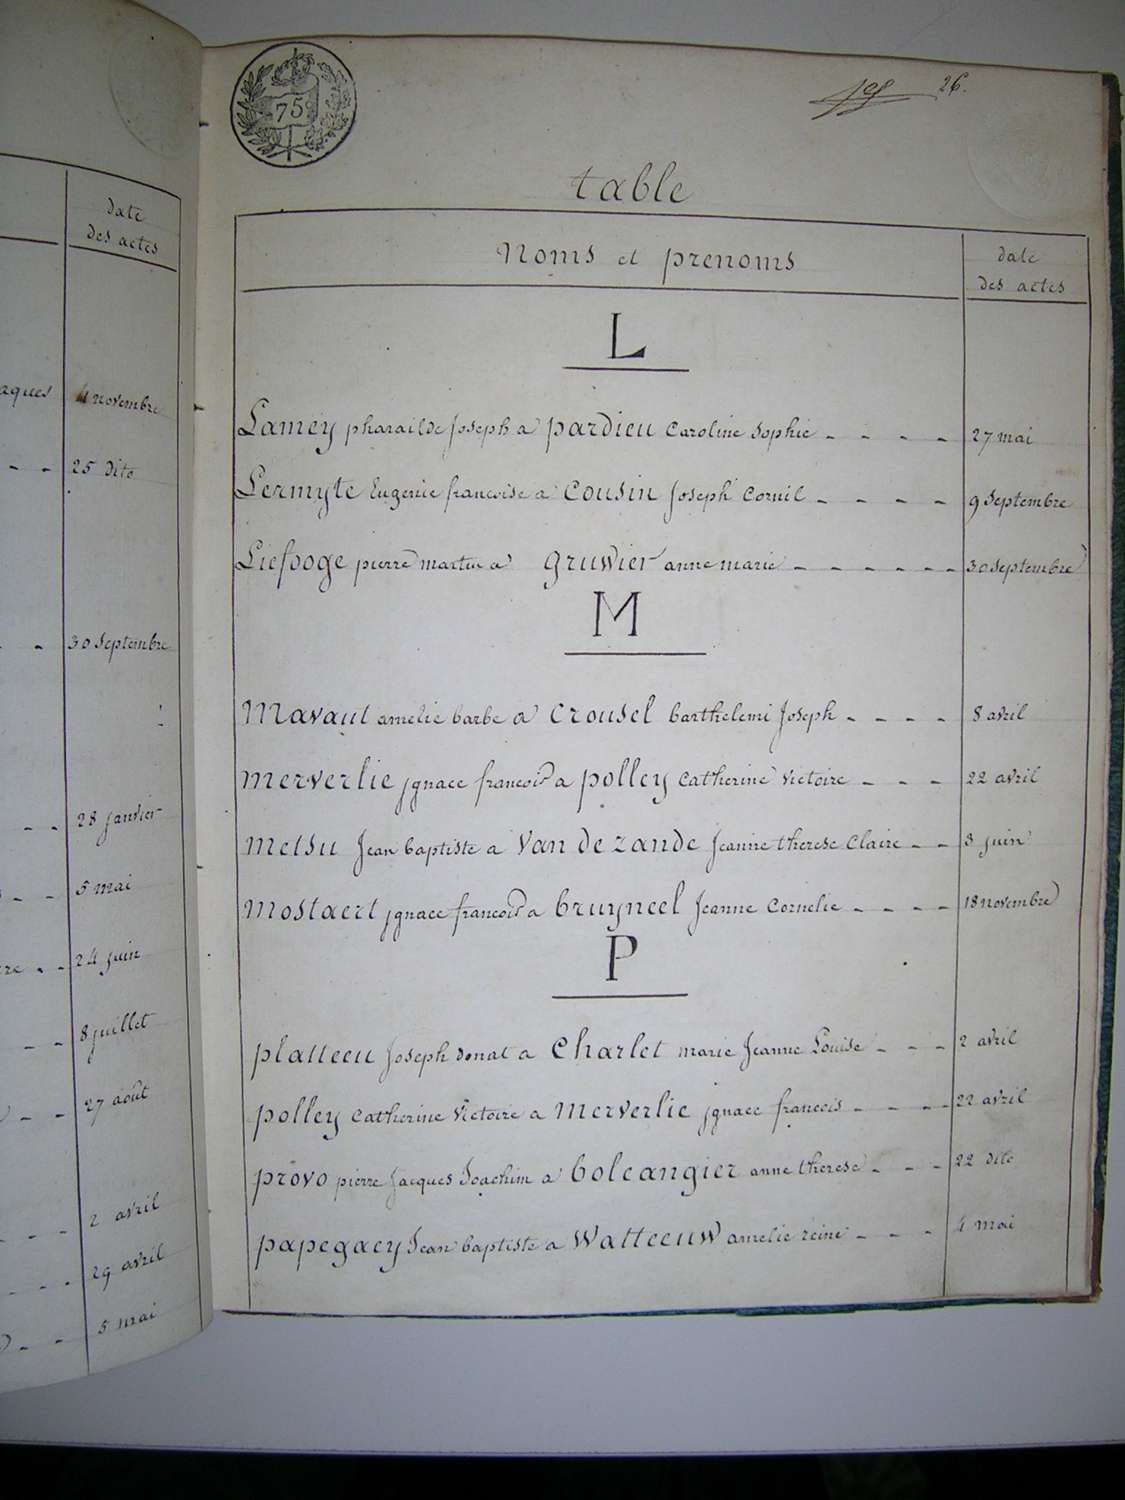 date
des actes
aques 4 novembre
25 dito
30 Septembre
28 janvier
5 mai
24 juin
8 juillet
27 août
2 avril
29 avril
5 mai
75
26.
table
Noms et prenoms
date
des actes
L
Lamey pharailde Joseph a pardieu Caroline Sophie - - - - 27 mai
Lermyte Eugenie francoise a Cousin Joseph Cornil - - - - 9 Septembre
Liefooge pierre martin a gruwier anne marie - - - - - - 30 Septembre
M
Mavaut amelie barbe a Crousel barthelemi Joseph - - - - 8 avril
merverlie jgnace francois a polley Catherine Victoire - - - 22 avril
metsu Jean baptiste a Van de zande Jeanne therese Claire - - 3 juin
mostaert jgnace francois a bruyneel Jeanne Cornelie - - - - 18 novembre
P
platteeu Joseph donat a Charlet marie Jeanne Louise - - - 2 avril
polley Catherine Victoire a Merverlie jgnace francois - - - - 22 avril
provo pierre Jacques Joachim a boleangier anne therese - - - 22 dito
papegaey Jean baptiste a Watteeuw amelie reine - - - 4 mai